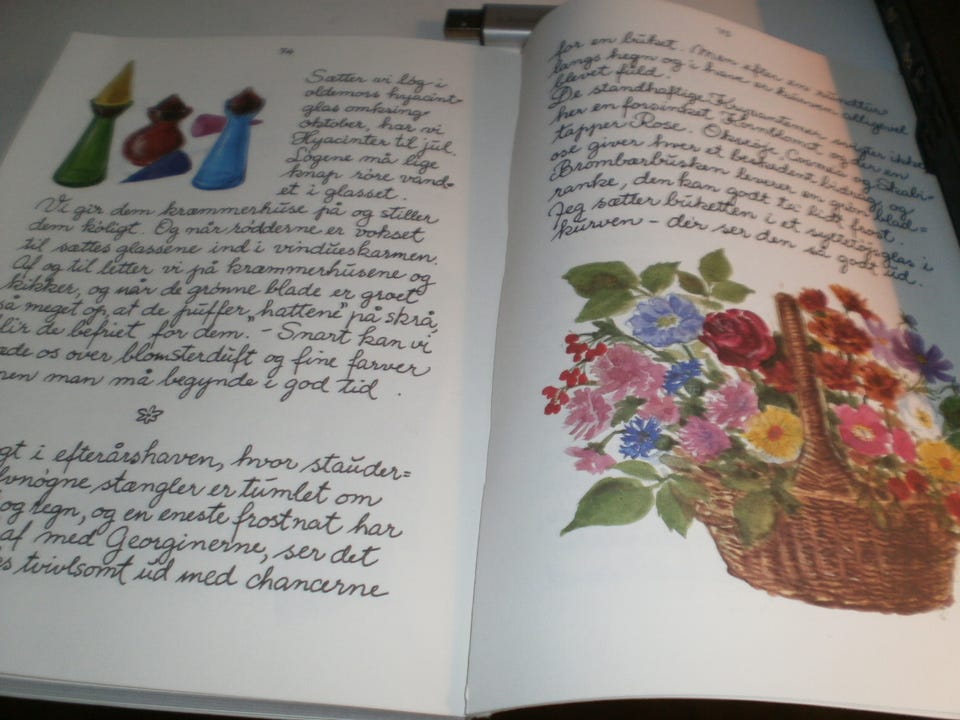 74
Sætter vi løg i
oldemors hyacint=
glas omkring
oktober, har vi
Hyacinter til jul.
Løgene må lige
knap røre vand=
et i glasset.
Vi gir dem kræmmerhuse på og stiller
dem køligt. Og når rødderne er vokset
til sættes glassene ind i vindueskarmen.
Af og til letter vi på kræmmerhusene og
kikker, og når de grønne blade er groet
så meget op, at de puffer „hatten" på skrå,
blir de befriet for dem. – Snart kan vi
os over blomsterduft og fine farver
men man må begynde i god tid.
i efterårshaven, hvor stauder=
stængler er tumlet om
og regn, og en eneste frostnat har
af med Georginerne, ser det
tvivlsomt ud med chancerne
75
for en buket. Men efter en rundtur
langs hegn og i have er kurven alligevel
blevet fuld.
De standhaftige Krysantemer svigter ikke,
her en forsinket Kornblomst og der en
tapper Rose. Okseøje, Cosmea og Skabi=
ose giver hver et beskedent bidrag, og
Brombærbusken leverer en grøn blad=
ranke, den kan godt ta' lidt frost.
Jeg sætter buketten i et syltetøjsglas i
kurven – dér ser den så godt ud.